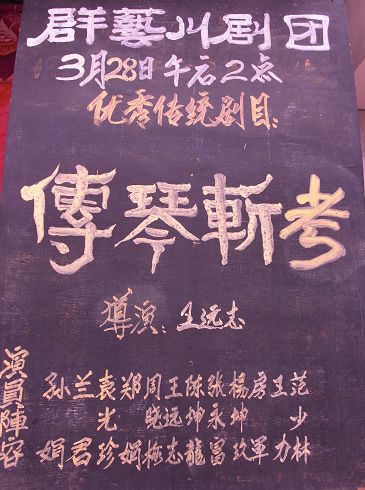 群藝川剧团
3月28日午后2点
优秀传统剧目:
傳琴斬考
導演: 王远志
演員陣容
孙娟
兰君
袁光珍
郑娟
周晓梅
王远志
陈坤龍
张永富
杨坤玖
房军
王力
范少林